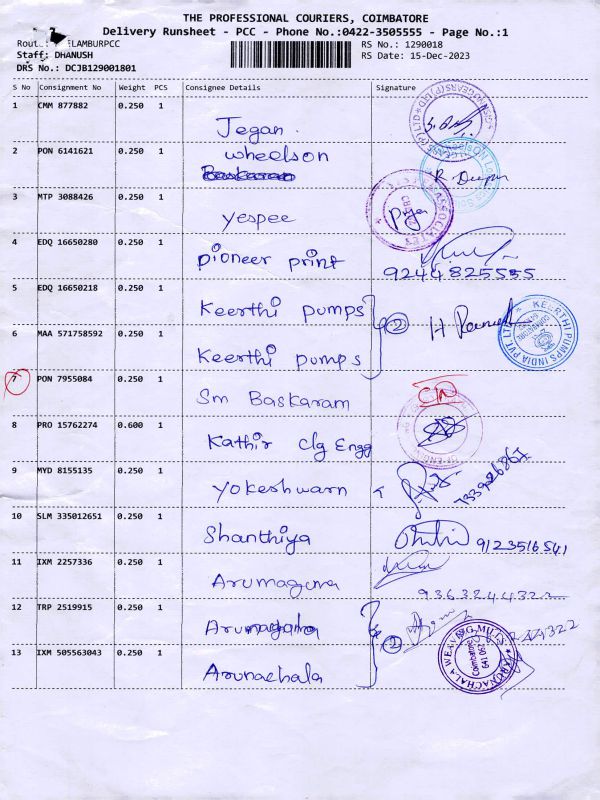 THE PROFESSIONAL COURIERS, COIMBATORE
Delivery Runsheet - PCC - Phone No.:0422-3505555 - Page No.:1
Route: LAMBURPCC
RS No.: 1290018
Staff: DHANUSH
RS Date: 15-Dec-2023
DRS No.: DCJB129001801
S No Consignment No Weight PCS Consignee Details Signature
1 CMM 877882 0.250 1 Jegan.
2 PON 6141621 0.250 1 wheelson
Baskaran
3 MTP 3088426 0.250 1 yespee
4 EDQ 16650280 0.250 1 pioneer print
9244825555
5 EDQ 16650218 0.250 1 Keerthi pumps
②
6 MAA 571758592 0.250 1 Keerthi pumps
KEERTHI PUMPS INDIA PVT LTD
7 PON 7955084 0.250 1 Sm Baskaram
8 PRO 15762274 0.600 1 Kathir clg Engg
9 MYD 8155135 0.250 1 yokeshwarn
10 SLM 335012651 0.250 1 Shanthiya 9123516541
11 IXM 2257336 0.250 1 Arumaguna
12 TRP 2519915 0.250 1
②
13 IXM 505563043 0.250 1 Arunachala
ARUNACHALA WEAVING MILLS
Coimbatore
641 062